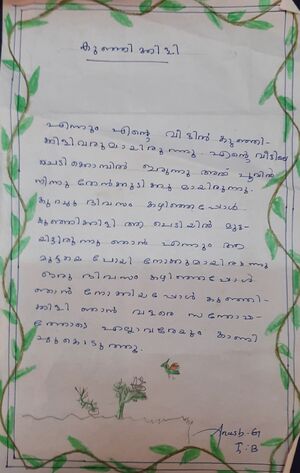 കുഞ്ഞിക്കിളി
എന്നും എന്റെ വീട്ടിൽ കുഞ്ഞി-
ക്കിളി വരുമായിരുന്നു. എന്റെ വീട്ടിലെ
ചെടി കൊമ്പിൽ ഇരുന്നു അത് പൂവിൽ
നിന്നു തേൻകുടിക്കു മായിരുന്നു.
കുറച്ചു ദിവസം കഴിഞ്ഞപ്പോൾ
കുഞ്ഞിക്കിളി ആ ചെടിയിൽ മുട്ട-
യിട്ടിരുന്നു ഞാൻ എന്നും ആ
മുട്ടയെ പോയി നോക്കുമായിരുന്നു
ഒരു ദിവസം കഴിഞ്ഞപ്പോൾ
ഞാൻ നോക്കിയപ്പോൾ കുഞ്ഞി-
ക്കിളി ഞാൻ വളരെ സന്തോഷ-
ത്തോടെ എല്ലാവരേയും കാണി
ച്ചുകൊടുത്തു.
Anush-G